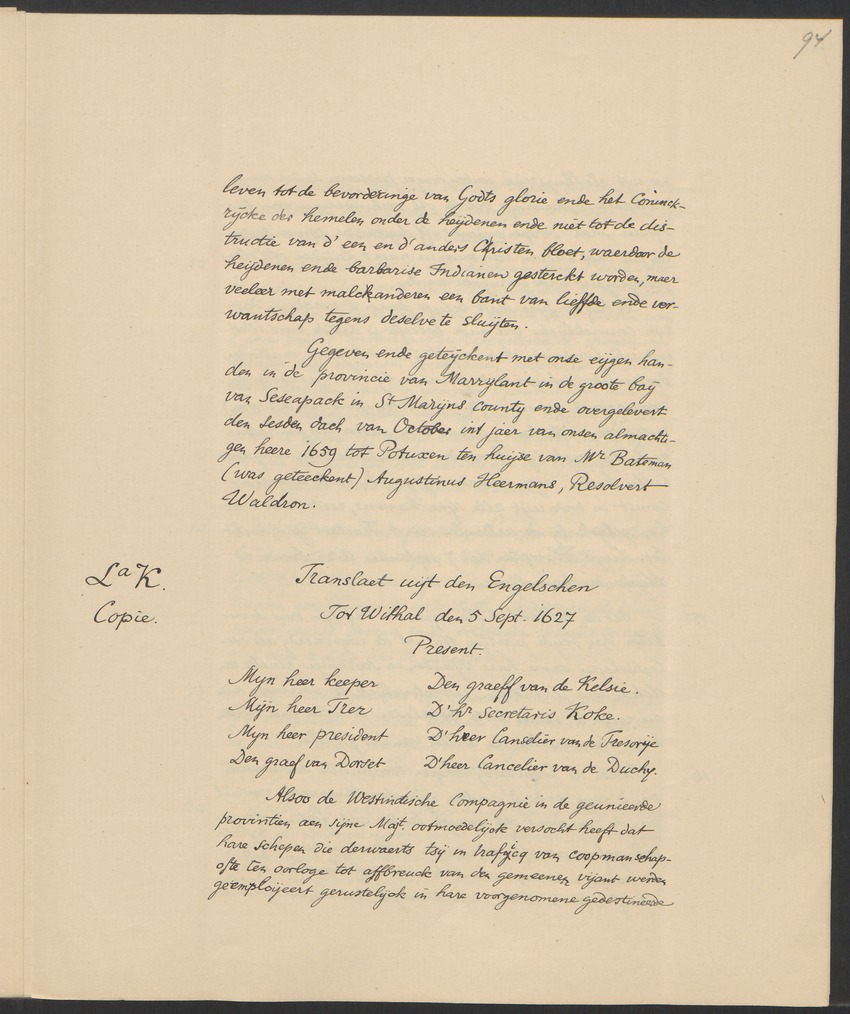 94
leven tot de bevorderinge van Godts glorie ende het Coninck-
rijcke der hemelen onder de heijdenen ende niet tot de dis-
tructie van d'een en d'anders Christen bloet, waerdoor de
heijdenen ende barbarise Indianen gesterckt worden, maer
veeleer met malckanderen een bant van lieffde ende ver-
wantschap tegens deselve te sluijten.
Gegeven ende geteijckent met onse eijgen han-
den in de provincie van Marrylant in de groote baij
van Seseapack in St Marijns county ende overgelevert
den sesden dach van October int jaer van onsen almachti-
gen heere 1659 tot Potuxen ten huijse van Mr Bateman
(was geteeckent) Augustinus Heermans, Resolvert
Waldron.
La K.
Copie.
Translaet uijt den Engelschen
Tot Withal den 5 Sept. 1627
Present.
Myn heer keeper
Den graeff van de Kelsie.
Mijn heer Trez
D'hr Secretaris Koke.
Myn heer president
D'heer Canselier van de Tresorije
Den graef van Dorset
D'heer Cancelier van de Duchy.
Alsoo de Westindische Compagnie in de geunieerde
provintien aen sijne Majt. ootmoedelijck versocht heeft dat
hare schepen die derwaerts tsij in traficq van coopmanschap-
ofte ten oorloge tot affbreuck van den gemeenen vijant werden
geemploijeert gerustelijck in hare voorgenomene gedestineerde